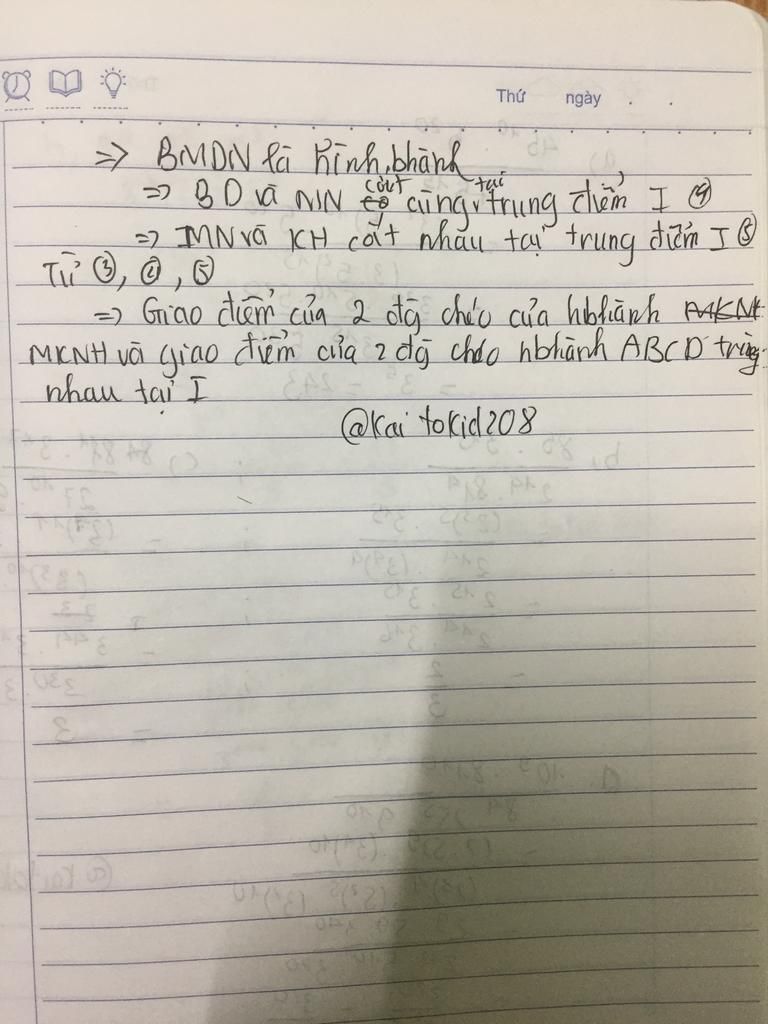 Thứ ngày . .
=> BMDN là hình bhành
=> BD và MN cắt cùng tại trung điểm I ④
=> MN và KH cắt nhau tại trung điểm I ⑤
Từ ③, ④, ⑤
=> Giao điểm của 2 đg chéo của hbhành
MKNH và giao điểm của 2 đg chéo hbhành ABCD trùng
nhau tại I
@Kaitokid208